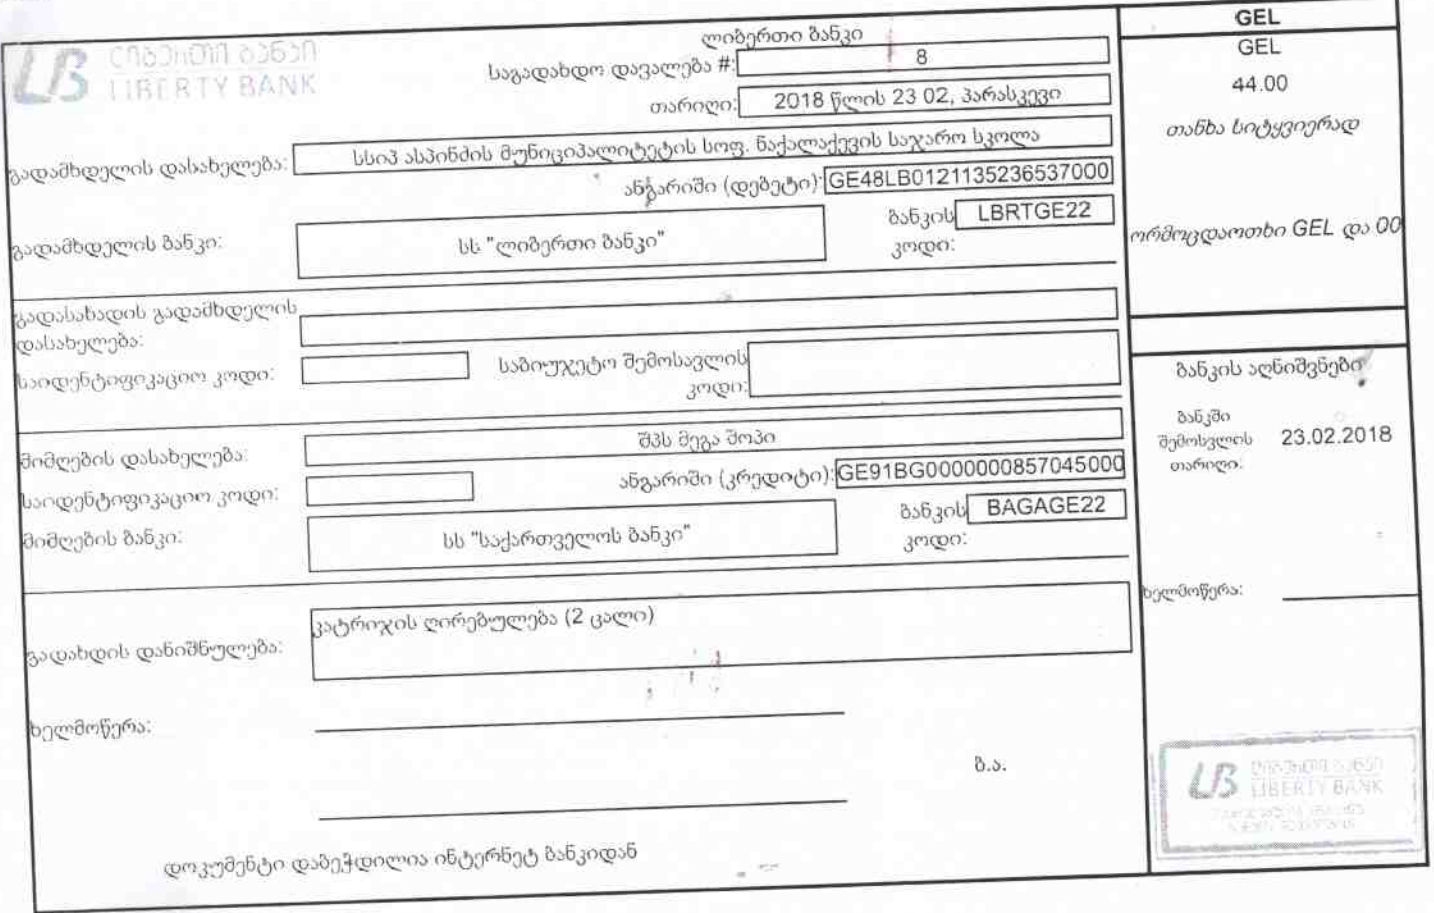 ლიბერთი ბანკი
LIBERTY BANK
ლიბერთი ბანკი
საგადახდო დავალება #: 8
თარიღი: 2018 წლის 23 02, პარასკევი
გადამხდელის დასახელება: სსიპ ასპინძის მუნიციპალიტეტის სოფ. ნაქალაქევის საჯარო სკოლა
ანგარიში (დებეტი): GE48LB0121135236537000
გადამხდელის ბანკი: სს "ლიბერთი ბანკი"
ბანკის კოდი: LBRTGE22
გადასახადის გადამხდელის
დასახელება:
საიდენტიფიკაციო კოდი:
საბიუჯეტო შემოსავლის
კოდი:
მიმღების დასახელება: შპს მეგა შოპი
საიდენტიფიკაციო კოდი:
ანგარიში (კრედიტი): GE91BG0000000857045000
მიმღების ბანკი: სს "საქართველოს ბანკი"
ბანკის კოდი: BAGAGE22
გადახდის დანიშნულება: კატრიჯის ღირებულება (2 ცალი)
ხელმოწერა:
ბ.ა.
დოკუმენტი დაბეჭდილია ინტერნეტ ბანკიდან
GEL
GEL
44.00
თანხა სიტყვიერად
ორმოცდაოთხი GEL და 00
ბანკის აღნიშვნები
ბანკში
შემოსვლის
თარიღი: 23.02.2018
ხელმოწერა:
LB ლიბერთი ბანკი
LIBERTY BANK